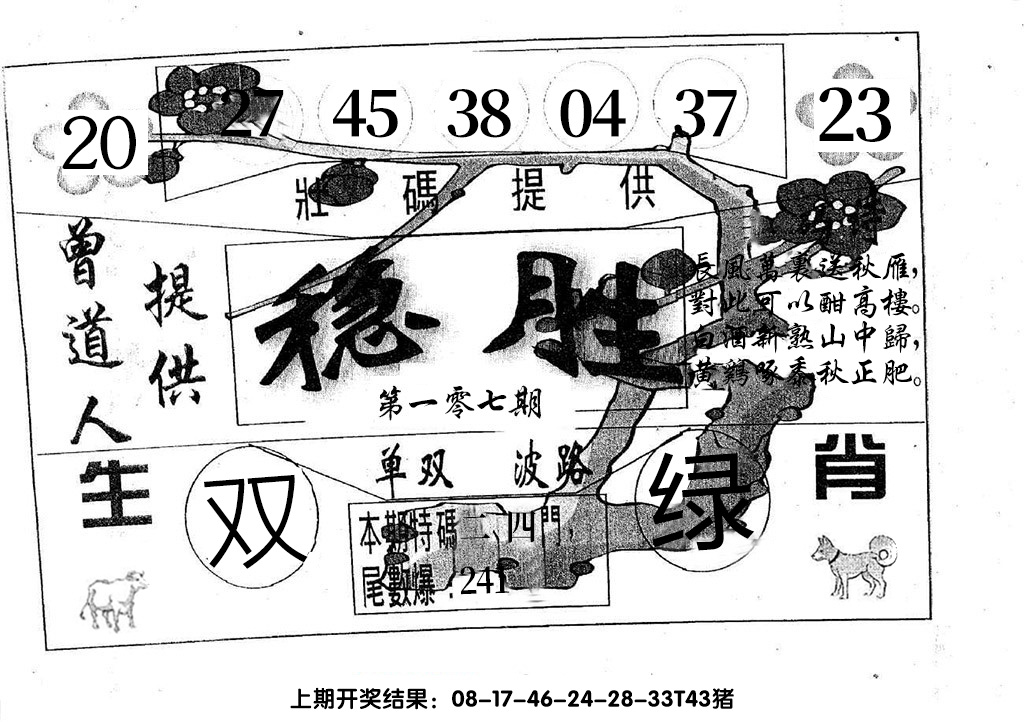 20 27 45 38 04 37 23
壯碼提供
曾道人
提供
稳胜
第一零七期
特
長風萬裏送秋雁，
對此可以酣高樓。
白酒新熟山中歸，
黄鷄啄黍秋正肥。
生肖
单双 波路
双
绿
本期特碼二、四門，
尾數爆：241
上期开奖结果：08-17-46-24-28-33T43猪